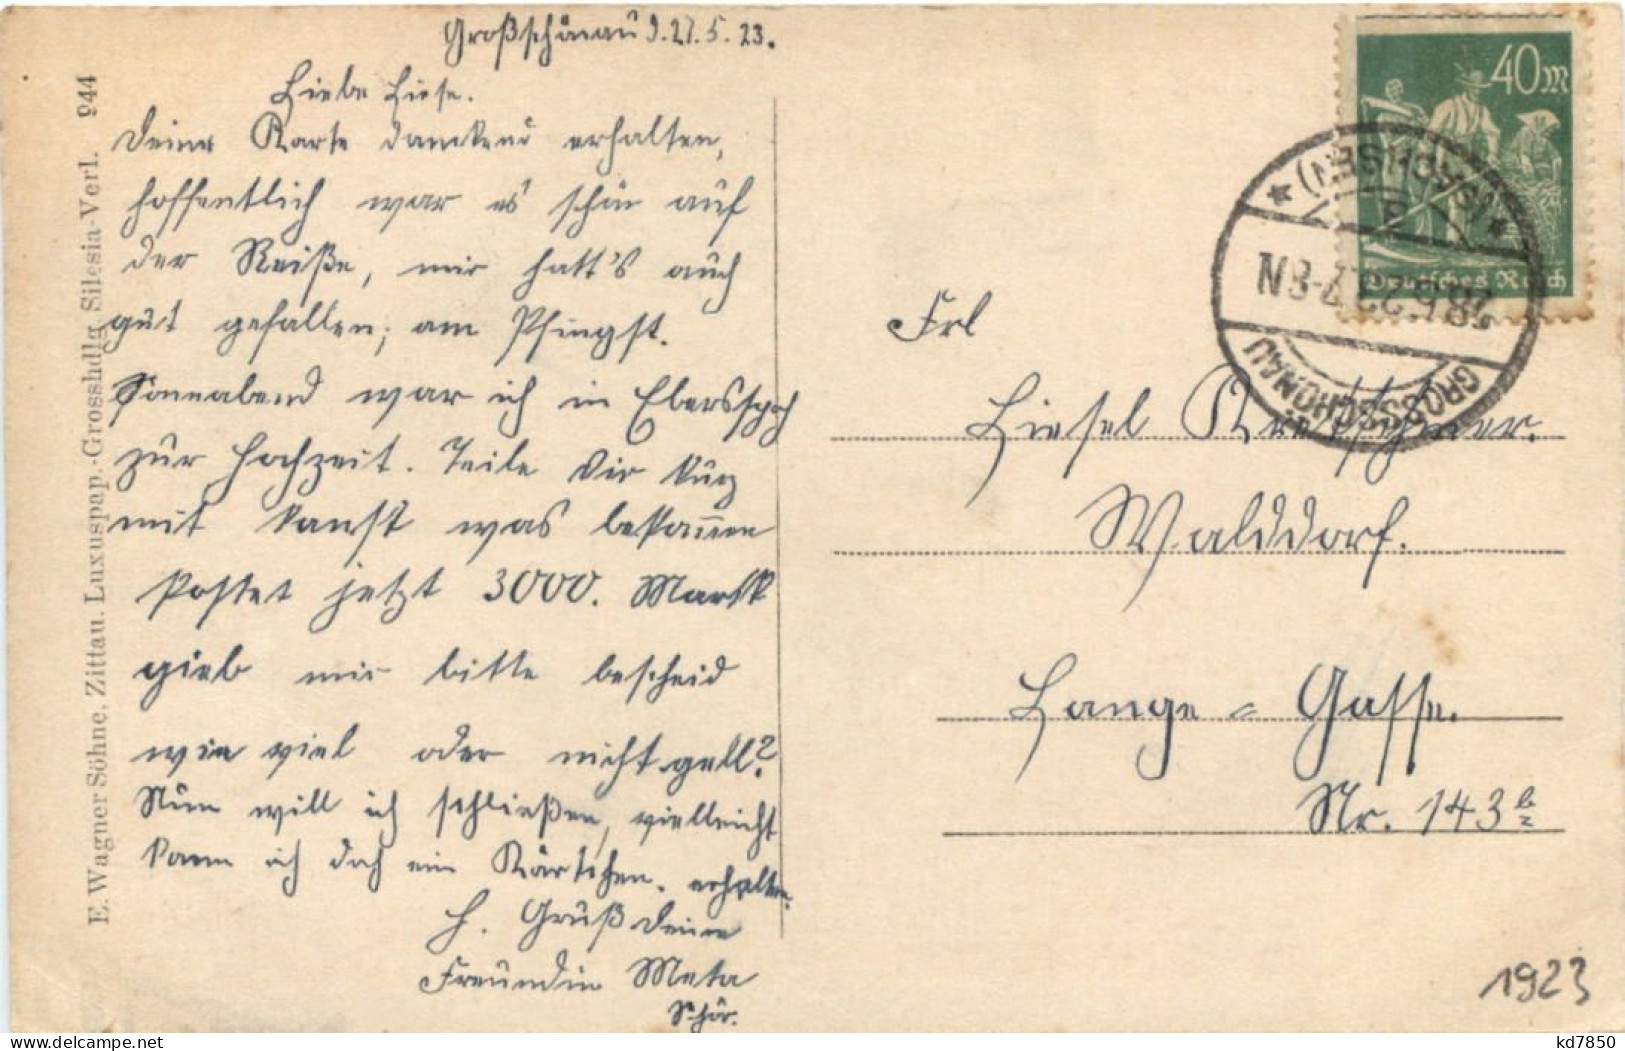 Großschönau d. 27.5.23.
Liebe Liese.
Deine Karte dankend erhalten,
hoffentlich war es schön auf
der Reiße, mir hatt's auch
gut gefallen; am Pfingst.
Sonnabend war ich in
zur Hochzeit. Teile Dir kurz
mit kanst was bekommen
kostet jetzt 3000. Mark
gieb mir bitte bescheid
wie viel oder nicht gell?
Nun will ich schließen, vielleicht
kann ich doch ein Kärtchen. erhalten.
H. Gruß Deine
Freundin Meta
Schör.
E. Wagner Söhne, Zittau. Luxuspap.-Grosshdlg. Silesia-Verl. 944
40 M
Deutsches Reich
GROSSSCHÖNAU
(SACHSEN)
28.5.23. 7-8N
Frl
Liesel Kretschmer.
Walddorf.
Lange-Gasse.
Nr. 143b
1923
kd7850